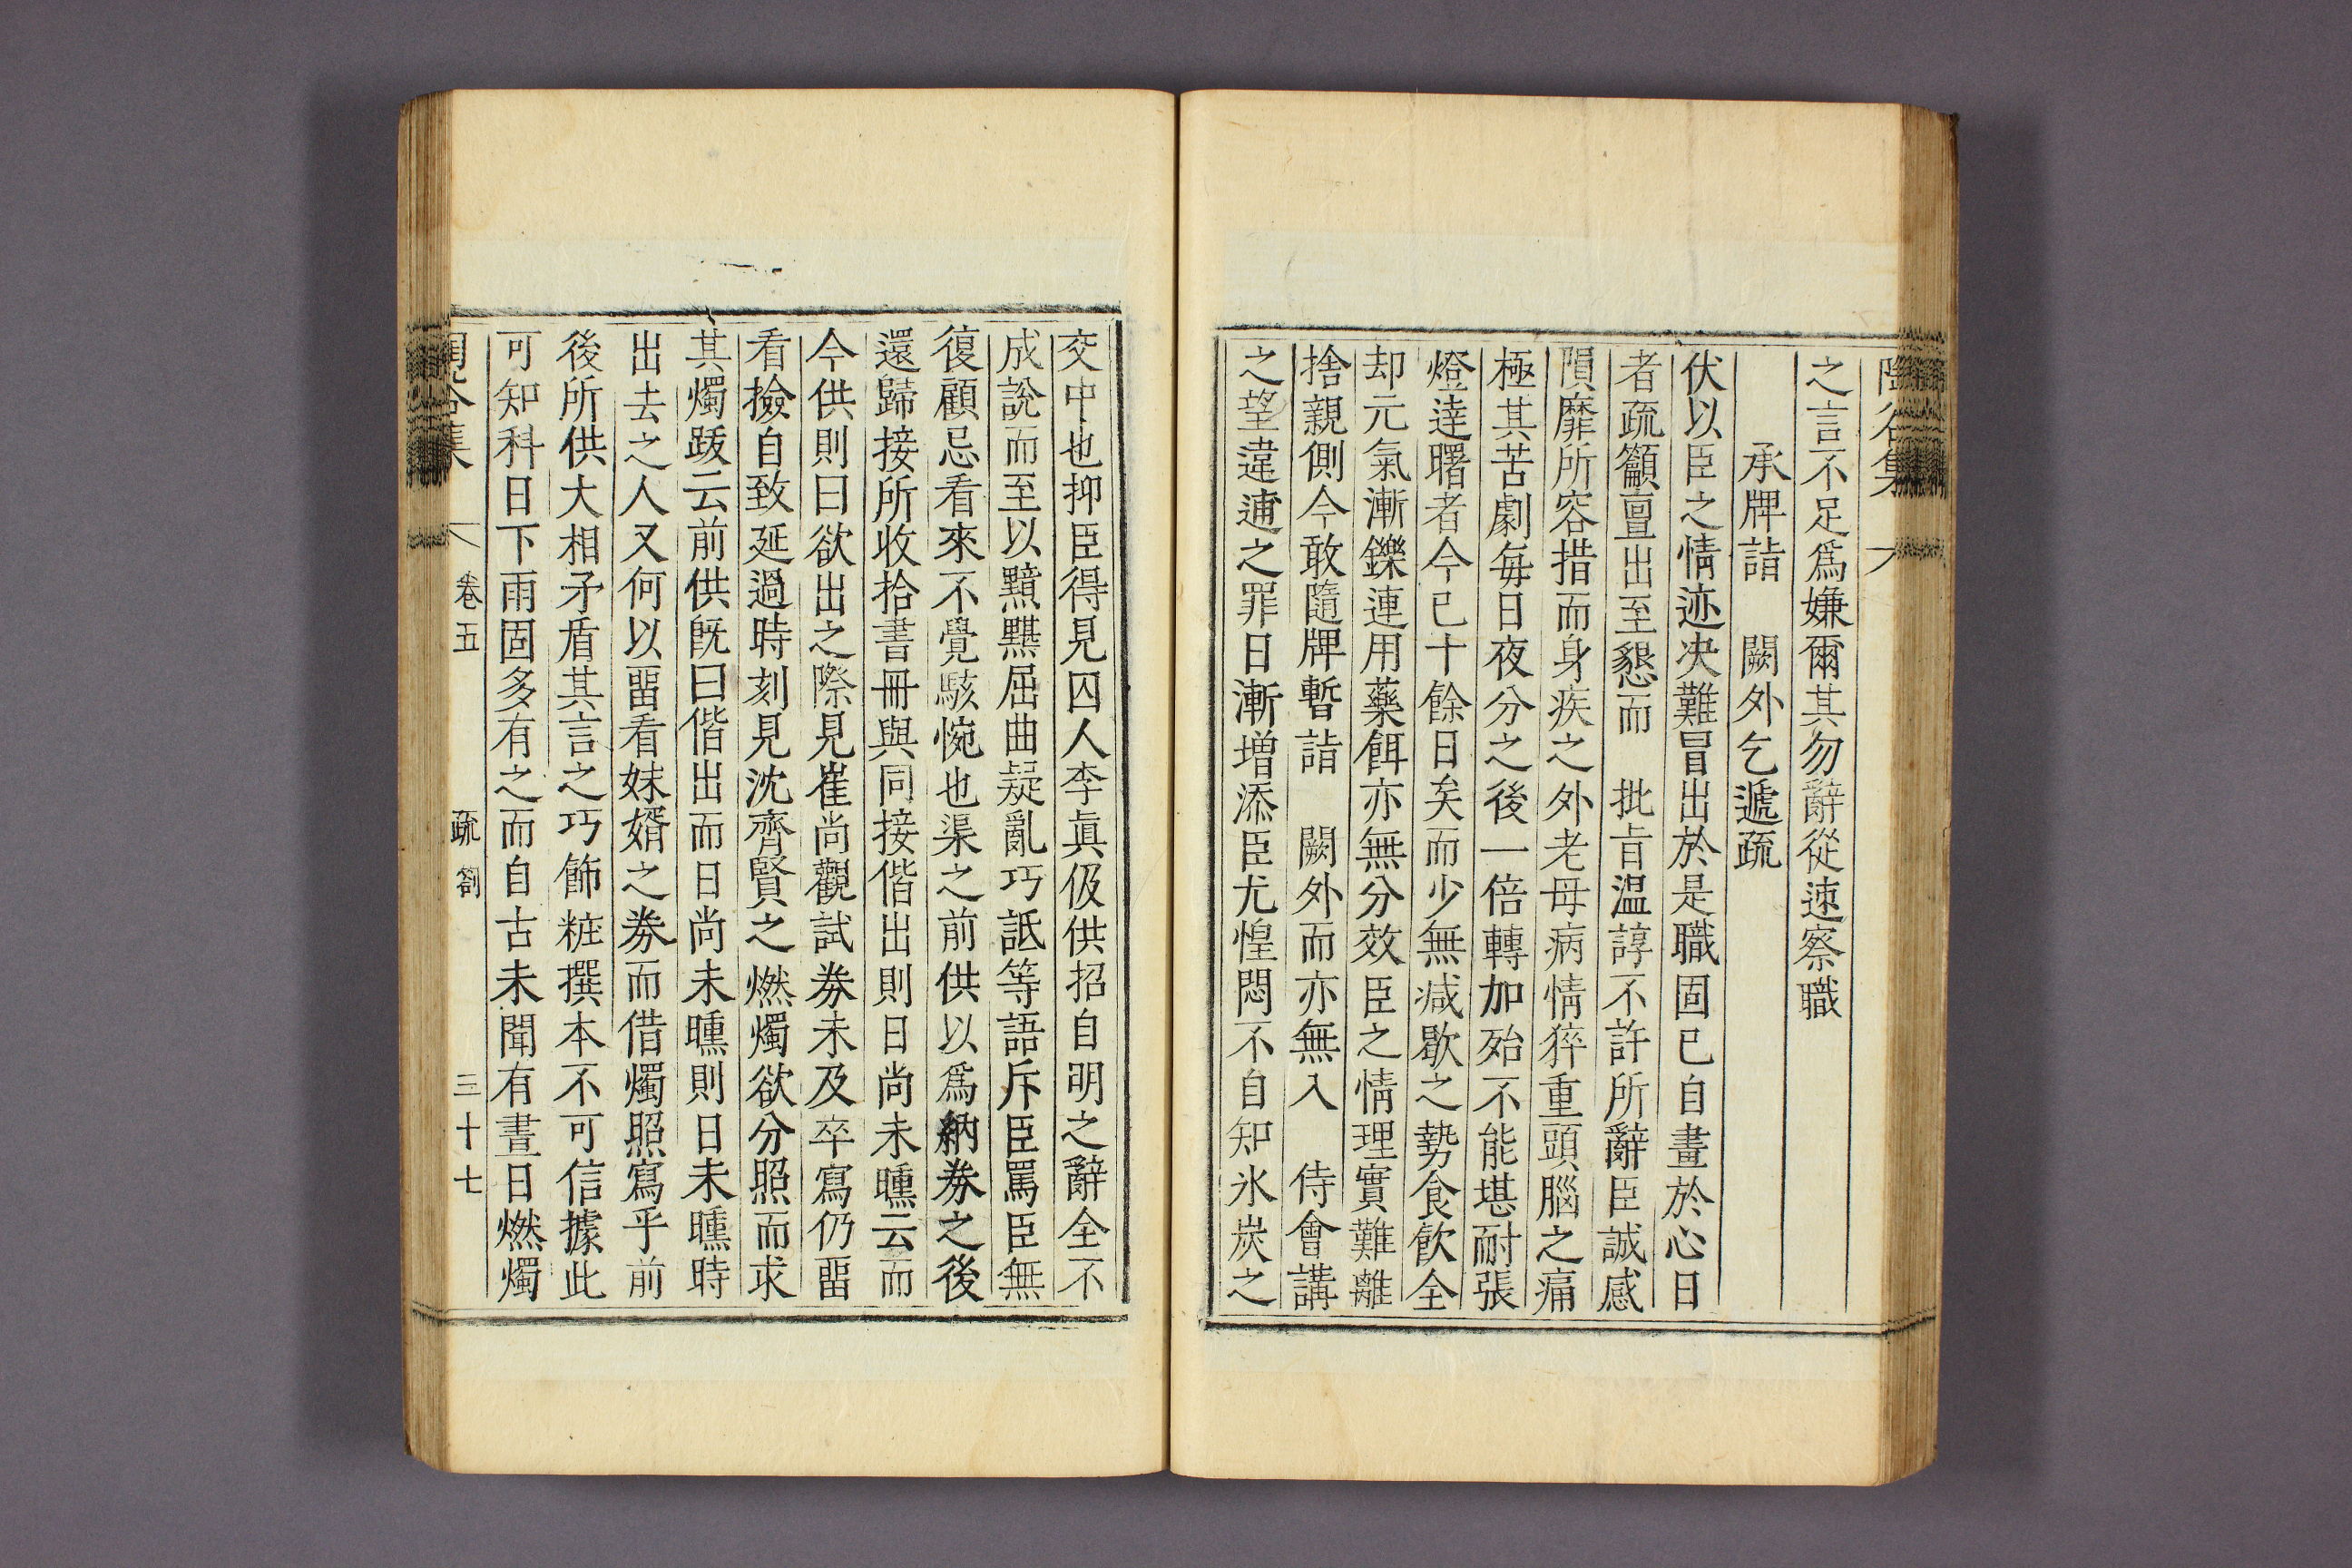 之言不足爲嫌爾其勿辭從速察職
承牌詣 闕外乞遞疏
伏以臣之情迹决難冒出於是職固已自畫於心日
者疏籲亶出至懇而 批旨温諄不許所辭臣誠感
隕靡所容措而身疾之外老母病情猝重頭腦之痛
極其苦劇每日夜分之後一倍轉加殆不能堪耐張
燈達曙者今已十餘日矣而少無减歇之勢食飮全
却元氣漸鑠連用藥餌亦無分效臣之情理實難離
捨親側今敢隨牌暫詣 闕外而亦無入 侍會講
之望違逋之罪日漸增添臣尤惶悶不自知氷炭之
交中也抑臣得見囚人李眞伋供招自明之辭全不
成說而至以黯黮屈曲疑亂巧詆等語斥臣罵臣無
復顧忌看來不覺駭惋也渠之前供以爲納券之後
還歸接所收拾書冊與同接偕出則日尚未曛云而
今供則曰欲出之際見崔尚觀試券未及卒寫仍留
看撿自致延過時刻見沈齊賢之燃燭欲分照而求
其燭跋云前供旣曰偕出而日尚未曛則日未曛時
出去之人又何以留看妹婿之券而借燭照寫乎前
後所供大相矛盾其言之巧飾粧撰本不可信據此
可知科日下雨固多有之而自古未聞有晝日燃燭
卷五 疏劄 三十七